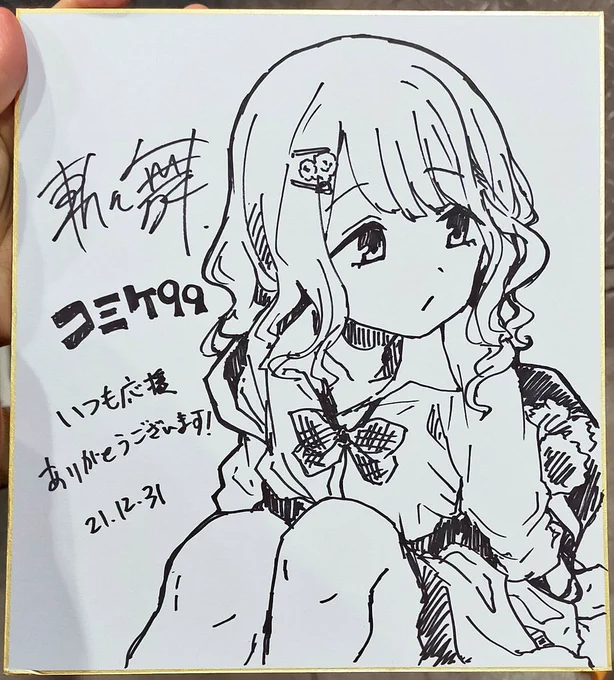 コミケ99
いつも応援
ありがとうございます!
21.12.31